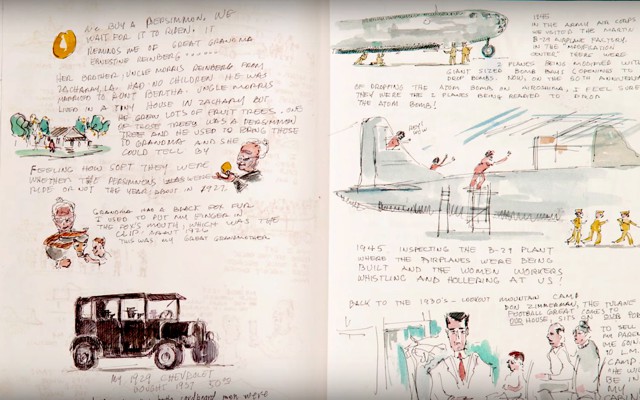 WE BUY A PERSIMMON. WE
WAIT FOR IT TO RIPEN. IT
REMINDS ME OF GREAT GRANDMA
ERNESTINE REINBERG......
HER BROTHER, UNCLE MORRIS REINBERG FROM
ZACHARY, LA. HAD NO CHILDREN. HE WAS
MARRIED TO AUNT BERTHA. UNCLE MORRIS
LIVED IN A TINY HOUSE IN ZACHARY BUT
HE GREW LOTS OF FRUIT TREES. ONE
OF THOSE TREES WAS A PERSIMMON
TREE AND HE USED TO BRING THOSE
TO GRANDMA AND SHE
COULD TELL BY
FEELING HOW SOFT THEY WERE
WHETHER THE PERSIMMONS WERE
RIPE OR NOT THE YEAR, ABOUT IN 1927.
GRANDMA HAD A BLACK FOX FUR
I USED TO PUT MY FINGER IN
THE FOX'S MOUTH, WHICH WAS THE
CLIP. ABOUT 1926
THIS WAS MY GREAT GRANDMOTHER
MY 1929 CHEVROLET
BOUGHT 1937
men were
1945
IN THE ARMY AIR CORPS
WE VISITED THE MARTIN
B-29 AIRPLANE FACTORY.
IN THE "MODIFICATION
CENTER" THERE WERE
PLANES BEING MODIFIED WITH
GIANT SIZED BOMB BAYS (OPENINGS TO
DROP BOMBS. NOW, ON THE 60TH ANNIVERSARY
OF DROPPING THE ATOM BOMB ON HIROSHIMA, I FEEL SURE
THEY WERE THE PLANES BEING READIED TO DROP
THE ATOM BOMB!
HEY!
WOW
1945 INSPECTING THE B-29 PLANT
WHERE THE AIRPLANES WERE BEING
BUILT AND THE WOMEN WORKERS
WHISTLING AND HOLLERING AT US!
BACK TO THE 1930'S - LOOKOUT MOUNTAIN CAMP
DON ZIMMERMAN, THE TULANE
FOOTBALL GREAT COMES TO
OUR HOUSE, SITS ON OUR
TO SELL
MY PARENTS
ME GOING
TO L.M.
CAMP
HE WILL
BE IN
MY
CABIN